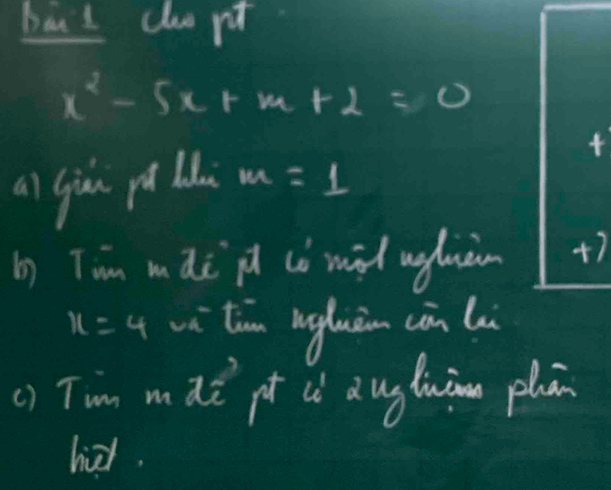 Bài 1 cho pt
x² - 5x + m + 2 = 0
a) Giải pt khi m = 1
b) Tìm m để pt có một nghiệm
x = 4 và tìm nghiệm còn lại
c) Tìm m để pt có 2 nghiệm phân
biệt.
+
+)